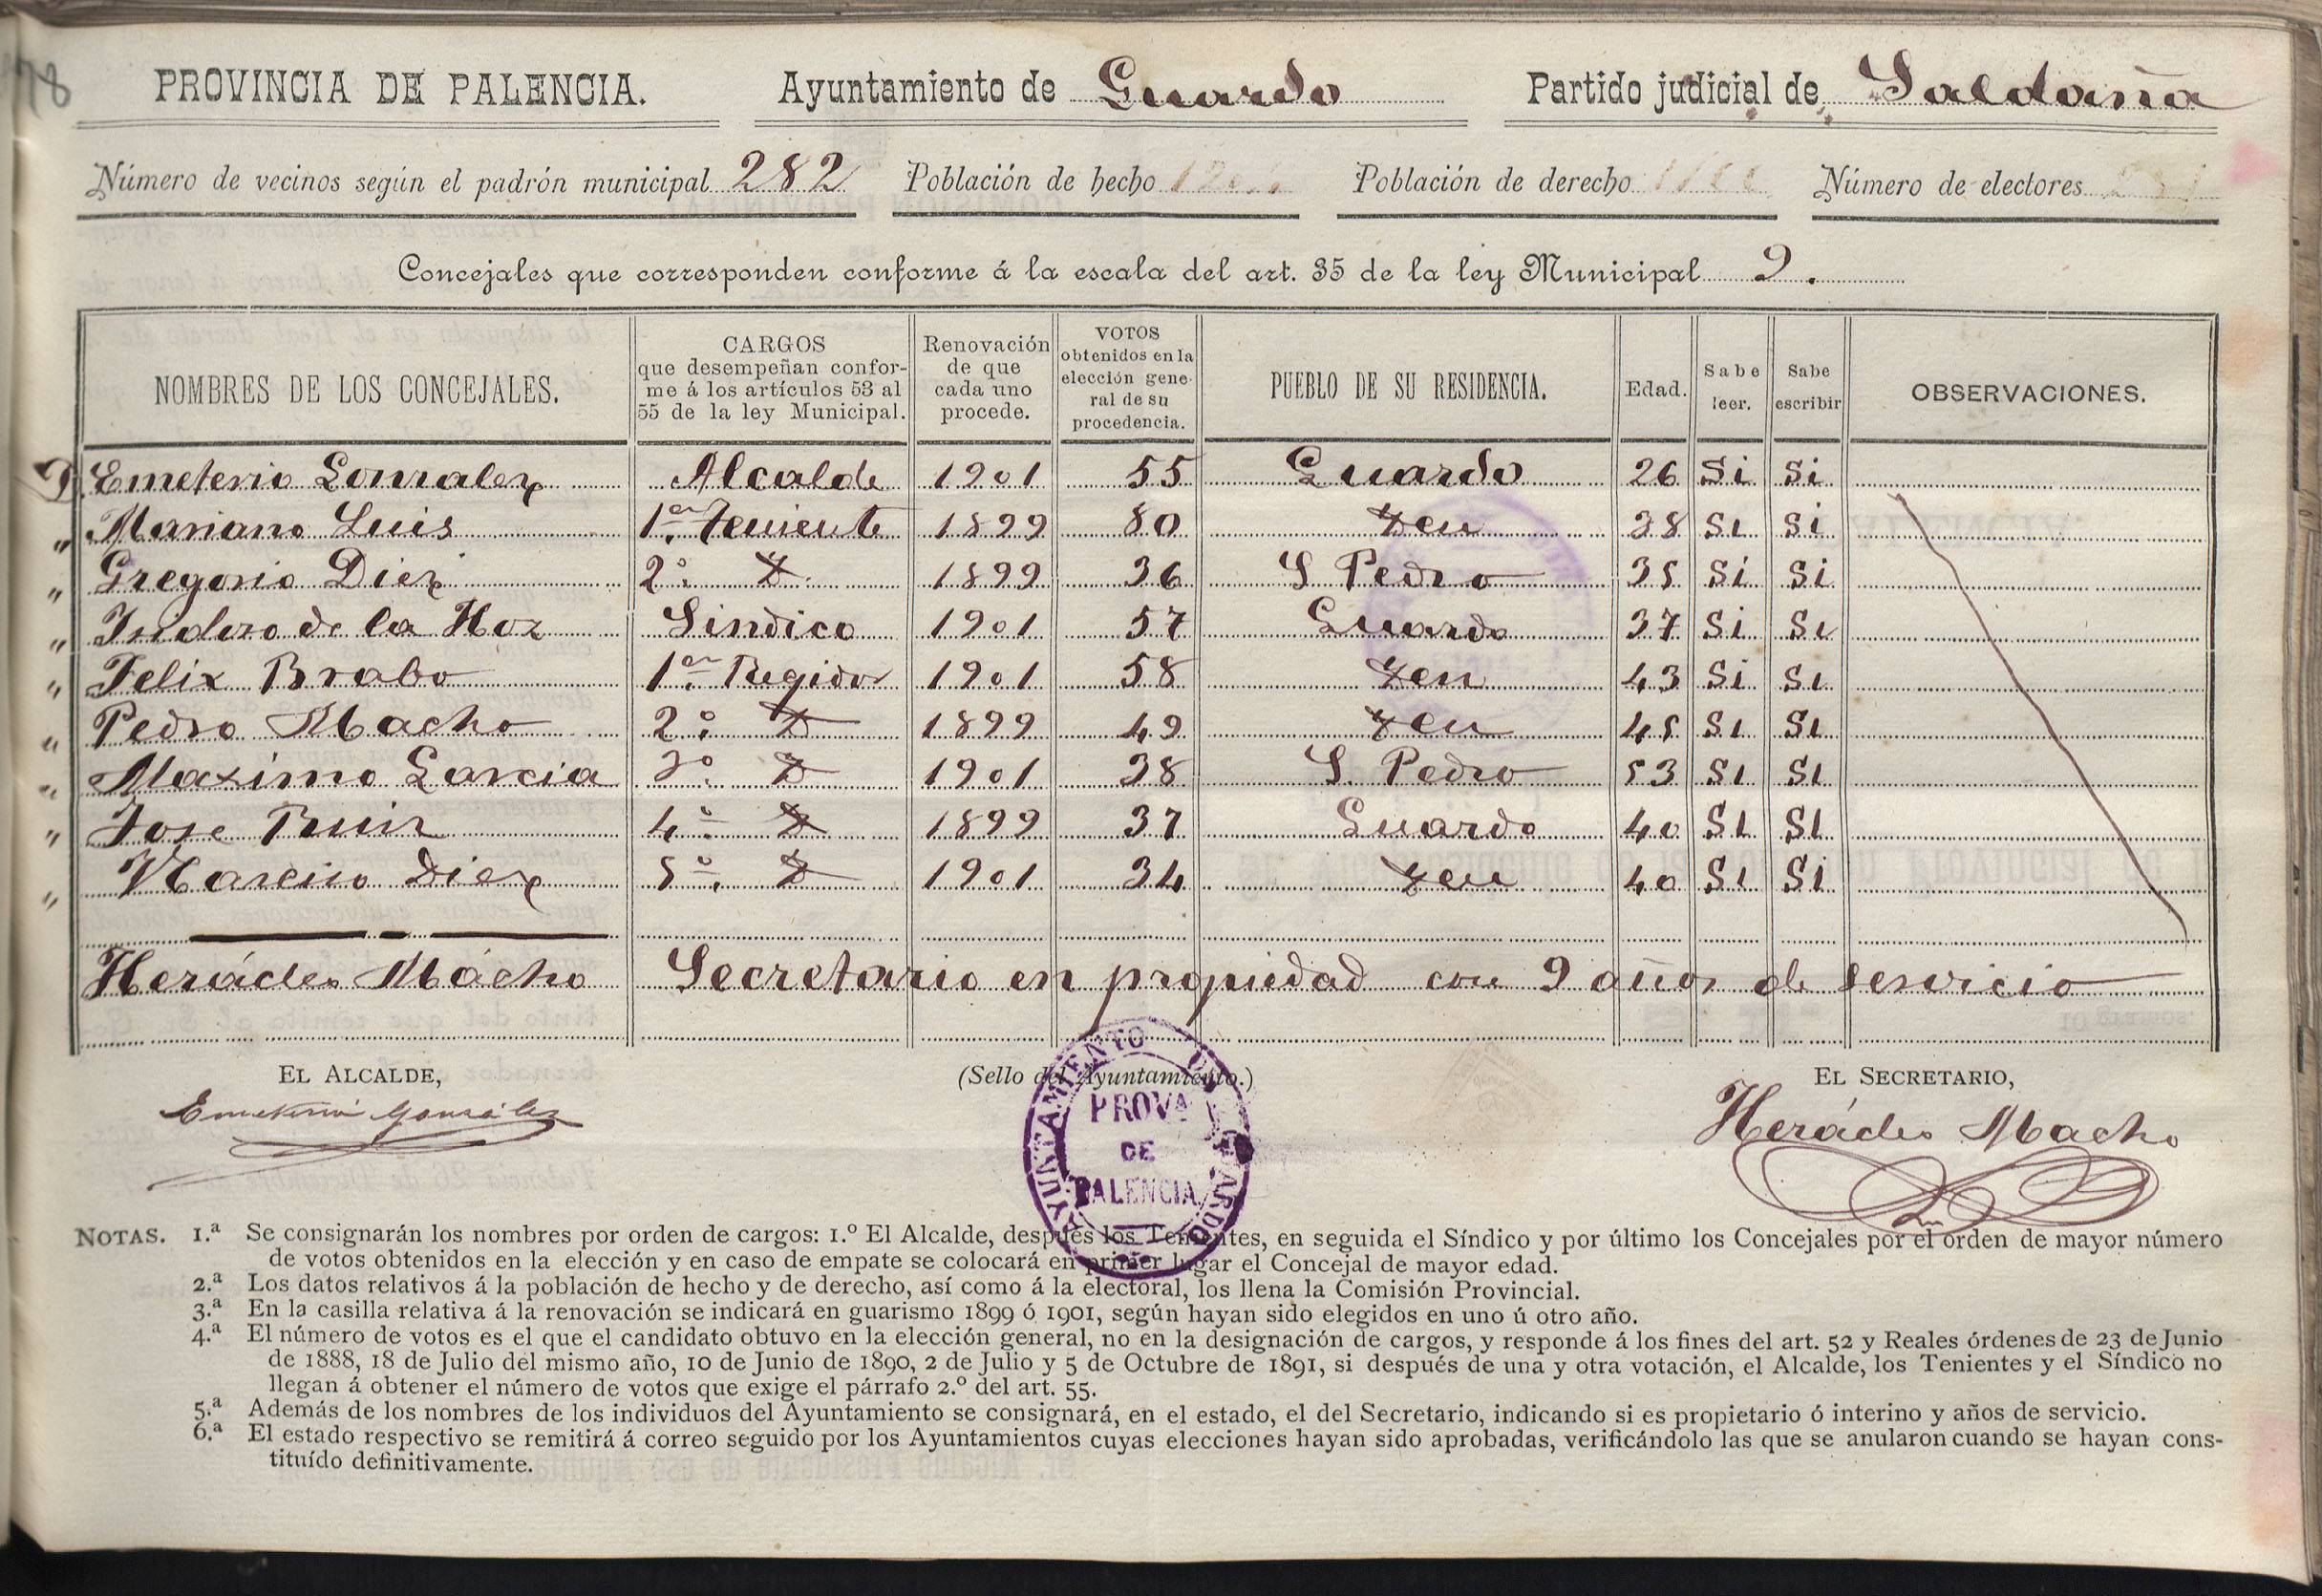 78
PROVINCIA DE PALENCIA. Ayuntamiento de Guardo Partido judicial de Saldaña
Número de vecinos según el padrón municipal 282 Población de hecho Población de derecho Número de electores
Concejales que corresponden conforme á la escala del art. 35 de la ley Municipal 9.
NOMBRES DE LOS CONCEJALES. CARGOS que desempeñan conforme á los artículos 53 al 55 de la ley Municipal. Renovación de que cada uno procede. VOTOS obtenidos en la elección general de su procedencia. PUEBLO DE SU RESIDENCIA. Edad. Sabe leer. Sabe escribir OBSERVACIONES.
D. Emeterio Gonzalez Alcalde 1901 55 Guardo 26 Si Si
" Mariano Luis 1er Teniente 1899 80 Yen 38 Si Si
" Gregorio Diez 2º. Y. 1899 36 S Pedro 35 Si Si
" Isidoro de la Hoz Sindico 1901 57 Guardo 37 Si Si
" Felix Brabo 1er Regidor 1901 58 Yen 43 Si Si
" Pedro Macho 2º. Y 1899 49 Yen 45 Si Si
" Maximo Garcia 3º. Y 1901 38 S. Pedro 53 Si Si
" Jose Ruiz 4º Y 1899 37 Guardo 40 Si Si
" Narciso Diez 5º. Y 1901 34 Yen 40 Si Si
Herácles Mácho Secretario en propiedad con 9 años de servicio
EL ALCALDE, (Sello del Ayuntamiento.) EL SECRETARIO,
Emeterio González
Herácles Macho
AYUNTAMIENTO DE GUARDO
PROVA
DE
PALENCIA
NOTAS. 1.ª Se consignarán los nombres por orden de cargos: 1.º El Alcalde, después los Tenientes, en seguida el Síndico y por último los Concejales por el orden de mayor número
de votos obtenidos en la elección y en caso de empate se colocará en primer lugar el Concejal de mayor edad.
2.ª Los datos relativos á la población de hecho y de derecho, así como á la electoral, los llena la Comisión Provincial.
3.ª En la casilla relativa á la renovación se indicará en guarismo 1899 ó 1901, según hayan sido elegidos en uno ú otro año.
4.ª El número de votos es el que el candidato obtuvo en la elección general, no en la designación de cargos, y responde á los fines del art. 52 y Reales órdenes de 23 de Junio
de 1888, 18 de Julio del mismo año, 10 de Junio de 1890, 2 de Julio y 5 de Octubre de 1891, si después de una y otra votación, el Alcalde, los Tenientes y el Síndico no
llegan á obtener el número de votos que exige el párrafo 2.º del art. 55.
5.ª Además de los nombres de los individuos del Ayuntamiento se consignará, en el estado, el del Secretario, indicando si es propietario ó interino y años de servicio.
6.ª El estado respectivo se remitirá á correo seguido por los Ayuntamientos cuyas elecciones hayan sido aprobadas, verificándolo las que se anularon cuando se hayan cons-
tituído definitivamente.